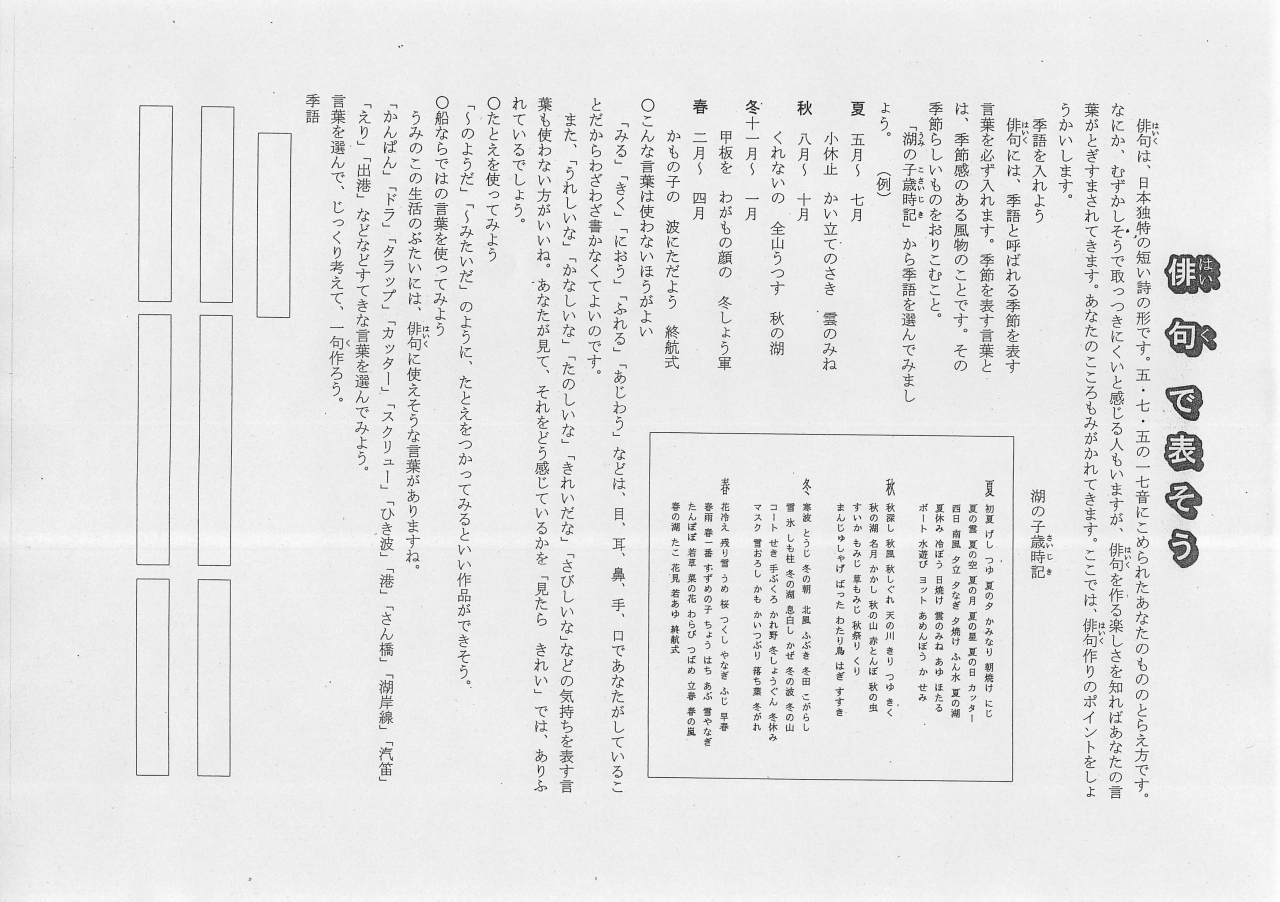 俳句で表そう
はい
く
俳句は、日本独特の短い詩の形です。五・七・五の一七音にこめられたあなたのもののとらえ方です。
はいく
なにか、むずかしそうで取っつきにくいと感じる人もいますが、俳句を作る楽しさを知ればあなたの言
はいく
葉がとぎすまされてきます。あなたのこころもみがかれてきます。ここでは、俳句作りのポイントをしょ
はいく
うかいします。
季語を入れよう
俳句には、季語と呼ばれる季節を表す
はいく
言葉を必ず入れます。季節を表す言葉と
は、季節感のある風物のことです。その
季節らしいものをおりこむこと。
「湖の子歳時記」から季語を選んでみまし
うみ こさいじき
ょう。 (例)
夏 五月～ 七月
小休止 かい立てのさき 雲のみね
秋 八月～ 十月
くれないの 全山うつす 秋の湖
冬十一月～ 一月
甲板を わがもの顔の 冬しょう軍
春 二月～ 四月
かもの子の 波にただよう 終航式
湖の子歳時記
さいじき
夏 初夏 げし つゆ 夏の夕 かみなり 朝焼け にじ
夏の雲 夏の空 夏の月 夏の星 夏の日 カッター
西日 南風 夕立 夕なぎ 夕焼け ふん水 夏の湖
夏休み 冷ぼう 日焼け 雲のみね あゆ ほたる
ボート 水遊び ヨット あめんぼう か せみ
秋 秋深し 秋風 秋しぐれ 天の川 きり つゆ きく
秋の湖 名月 かかし 秋の山 赤とんぼ 秋の虫
すいか もみじ 草もみじ 秋祭り くり
まんじゅしゃげ ばった わたり鳥 はぎ すすき
冬 寒波 とうじ 冬の朝 北風 ふぶき 冬田 こがらし
雪 氷 しも柱 冬の湖 息白し かぜ 冬の波 冬の山
コート せき 手ぶくろ かれ野 冬しょうぐん 冬休み
マスク 雪おろし かも かいつぶり 落ち葉 冬がれ
春 花冷え 残り雪 うめ 桜 つくし やなぎ ふじ 早春
春雨 春一番 すずめの子 ちょう はち あぶ 雪やなぎ
たんぽぽ 若草 菜の花 わらび つばめ 立春 春の嵐
春の湖 たこ 花見 若あゆ 終航式
○こんな言葉は使わないほうがよい
「みる」「きく」「におう」「ふれる」「あじわう」などは、目、耳、鼻、手、口であなたがしているこ
とだからわざわざ書かなくてよいのです。
また、「うれしいな」「かなしいな」「たのしいな」「きれいだな」「さびしいな」などの気持ちを表す言
葉も使わない方がいいね。あなたが見て、それをどう感じているかを「見たら きれい」では、ありふ
れているでしょう。
○たとえを使ってみよう
「～のようだ」「～みたいだ」のように、たとえをつかってみるといい作品ができそう。
○船ならではの言葉を使ってみよう
うみのこの生活のぶたいには、俳句に使えそうな言葉がありますね。
はいく
「かんぱん」「ドラ」「タラップ」「カッター」「スクリュー」「ひき波」「港」「さん橋」「湖岸線」「汽笛」
「えり」「出港」などなどすてきな言葉を選んでみよう。
言葉を選んで、じっくり考えて、一句作ろう。
く
季語